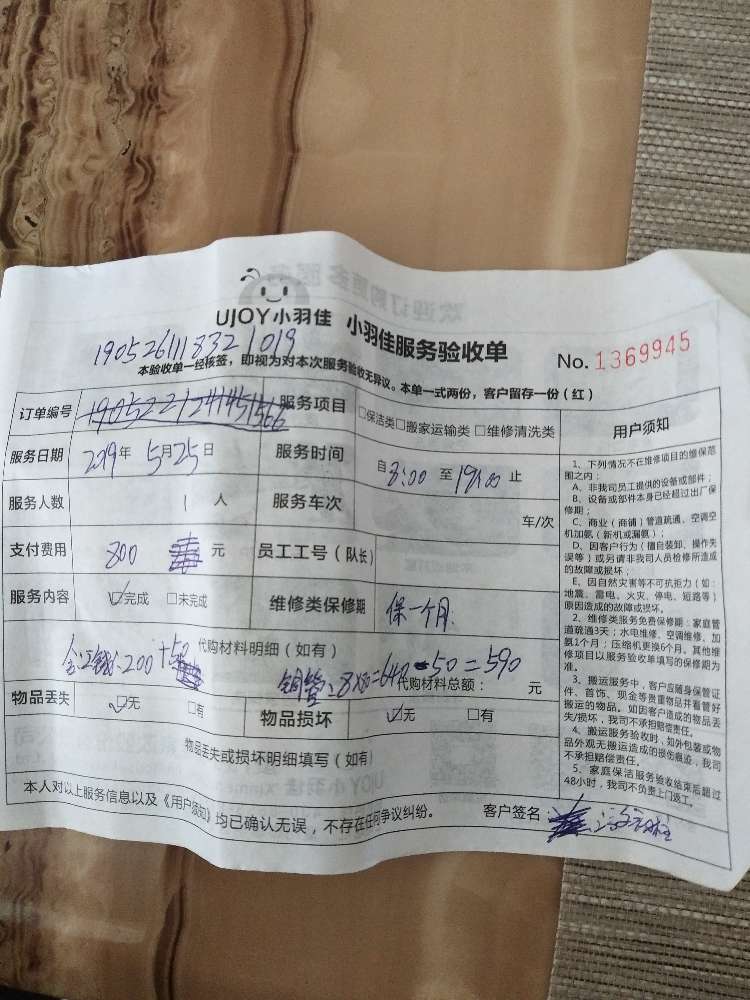 UJOY小羽佳 小羽佳服务验收单
No. 1369945
190526111832 1019
本验收单一经核签，即视为对本次服务验收无异议。本单一式两份，客户留存一份（红）
订单编号 服务项目 □保洁类□搬家运输类 □维修清洗类
服务日期 2019年 5月25日 服务时间 自8:00 至19:00 止
服务人数 1 人 服务车次 车/次
支付费用 800 元 员工工号（队长）
服务内容 ☑完成 □未完成 维修类保修期 保一个月
代购材料明细（如有）
200+50
铜管:8×80=640-50=590
代购材料总额： 元
物品丢失 ☑无 □有 物品损坏 ☑无 □有
物品丢失或损坏明细填写（如有）
本人对以上服务信息以及《用户须知》均已确认无误，不存在任何争议纠纷。 客户签名：
用户须知
1、下列情况不在维修项目的维保范
围之内：
A、非我司员工提供的设备或部件；
B、设备或部件本身已经超过出厂保
修期；
C、商业（商铺）管道疏通、空调空
机加氨（新机或漏氨）；
D、因客户行为（擅自装卸、操作失
误等）或另请非我司人员检修所造成
的故障或损坏；
E、因自然灾害等不可抗拒力（如：
地震、雷电、火灾、停电、短路等）
原因造成的故障或损坏。
2、维修类服务免费保修期：家庭管
道疏通3天；水电维修、空调维修、加
氨1个月；压缩机更换6个月。其他维
修项目以服务验收单填写的保修期为
准。
3、搬运服务中，客户应随身保管证
件、首饰、现金等贵重物品并看管好
搬运的物品。如因客户造成的物品丢
失/损坏，我司不承担赔偿责任。
4、搬运服务验收时，如外包装或物
品外观无搬运造成的损伤痕迹，我司
不承担赔偿责任。
5、家庭保洁服务验收结束后超过
48小时，我司不负责上门返工。